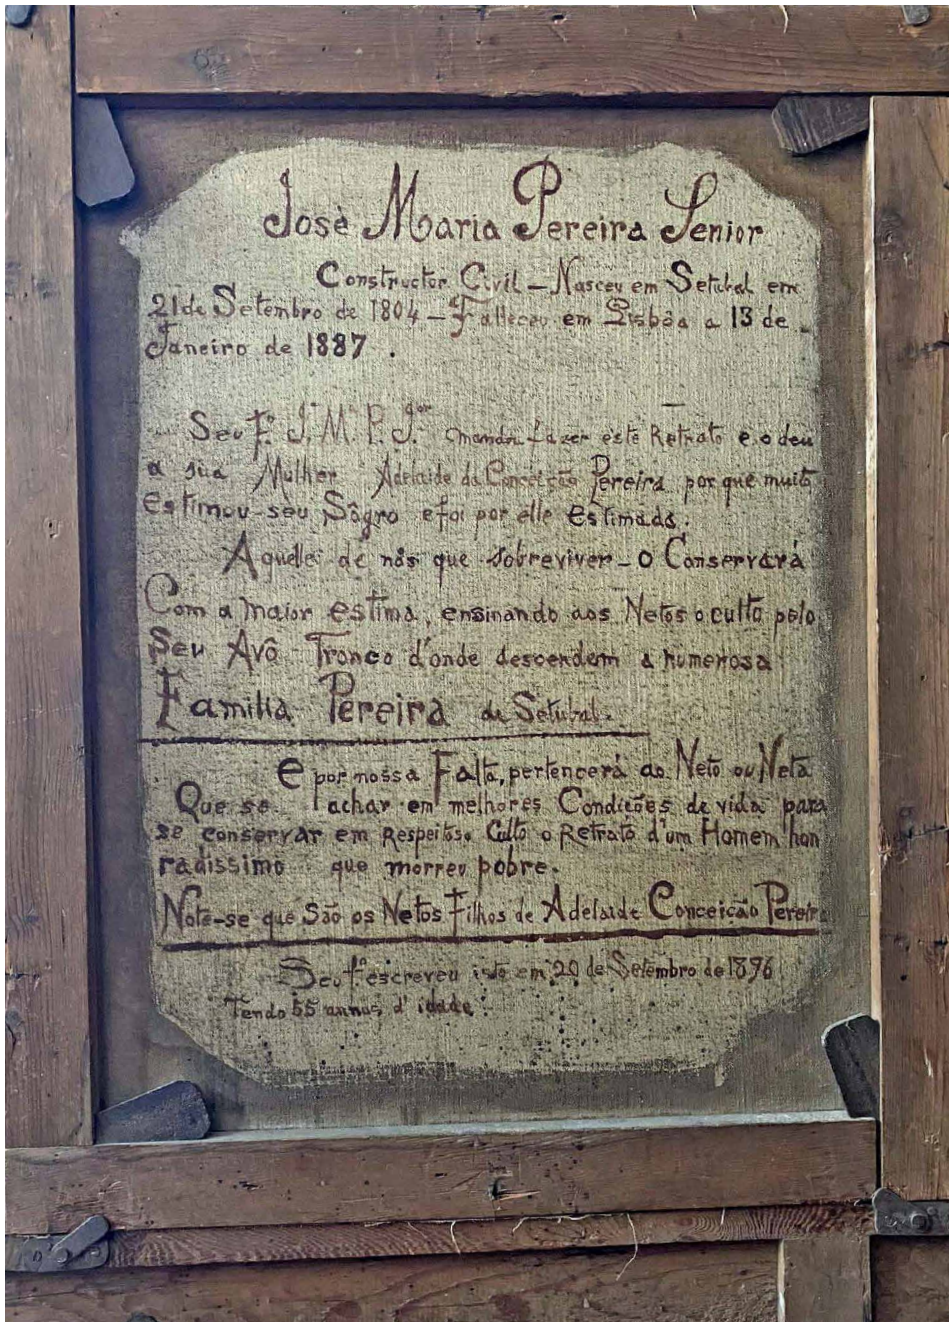 José Maria Pereira Senior
Constructor Civil – Nasceu em Setubal em
21 de Setembro de 1804 – Falleceu em Lisbôa a 13 de
Janeiro de 1887.
Seu Fº J. M. P. Jor mandou fazer este Retrato e o deu
a sua Mulher Adelaide da Conceição Pereira por que muito
estimou seu Sôgro e foi por elle estimada.
Aquelle de nós que sobreviver – o Conservará
Com a maior estima, ensinando aos Netos o culto pelo
Seu Avô Tronco d'onde descendem a numerosa
Familia Pereira de Setubal.
E por nossa Falta, pertencerá ao Neto ou Neta
Que se achar em melhores Condições de vida para
se conservar em Respeitoso Culto o Retrato d'um Homem hon
radissimo que morreu pobre.
Note-se que São os Netos Filhos de Adelaide Conceição Pereira
Seu Fº escreveu isto em 20 de Setembro de 1896
Tendo 55 annos d'idade.